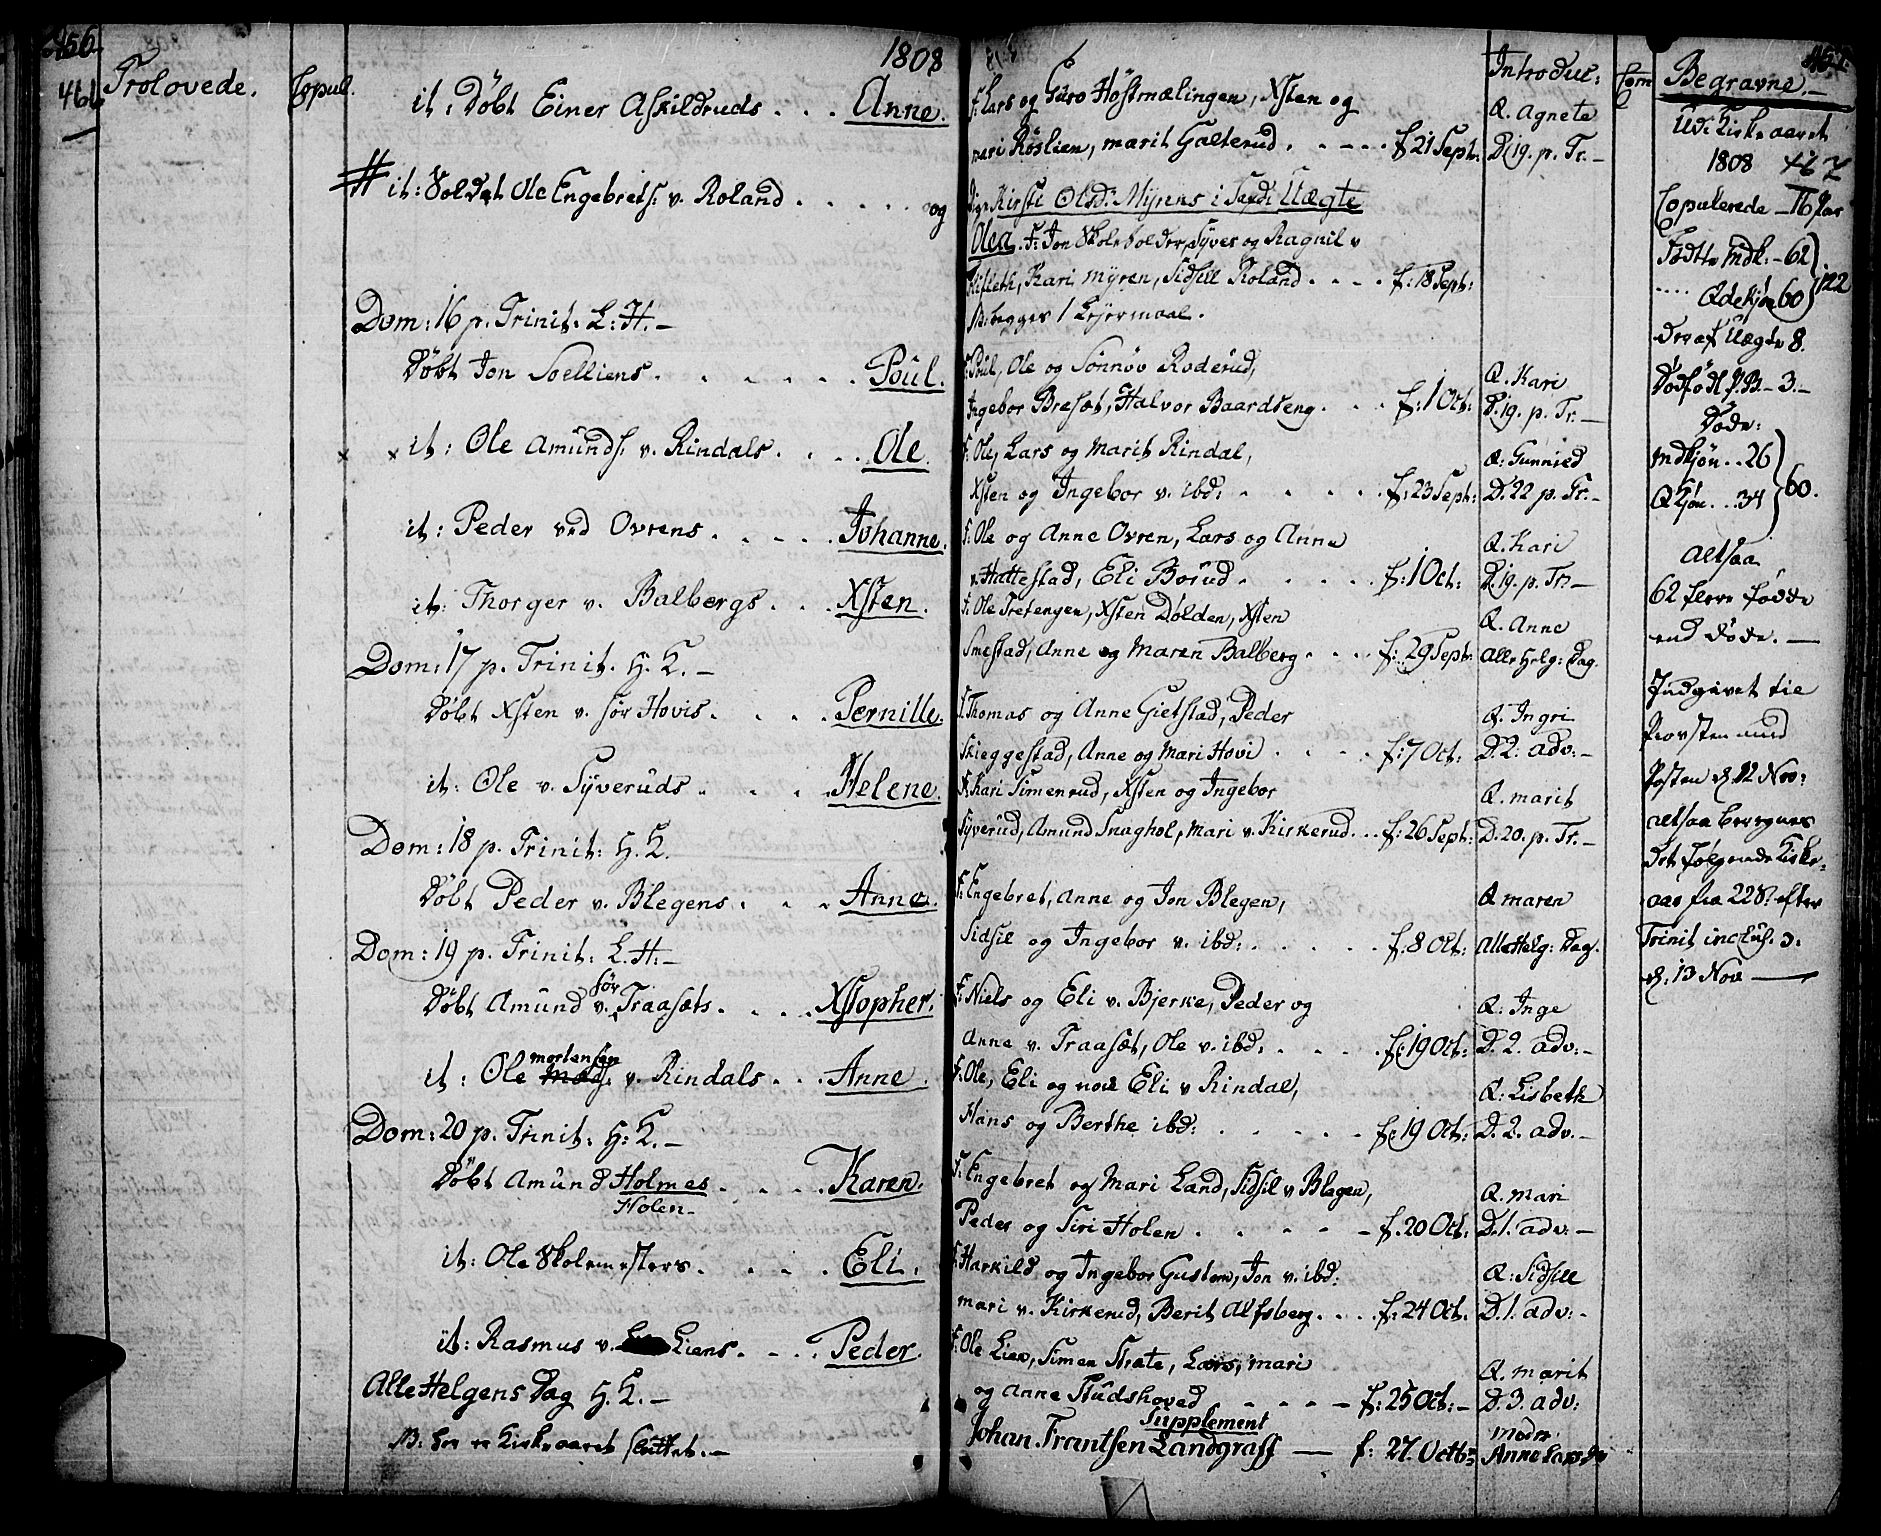 456
466 Trolovede. Copul. 1808
it: Döbt Einer Askildruds . . . Anne.
# it: Soldat Ole Engebrets: v. Roland . . . . . og
Dom: 16 p. Trinit: L: H. –
Döbt Jon Soelliens . . . . . . Poul.
it: Ole Amunds: v. Rindals . . . . Ole.
it: Peder ved Ovrens . . . . . Johanne.
it: Thorger v. Balbergs . . . Xsten.
Dom: 17 p. Trinit. H. K. –
Döbt Xsten v. sör Hovis . . . . Pernille.
it: Ole v. Syveruds . . . . Helene.
Dom: 18 p. Trinit: H. K.
Döbt Peder v. Blegens . . . . Anne.
Dom: 19 p. Trinit: L. H: –
Döbt Amund v. sör Traasets . . . . Xstopher.
it: Ole mortensen v. Rindals . . . Anne.
Dom: 20 p. Trinit: H: K. –
Döbt Amund Holmes . . . . Karen.
Holen –
it: Ole Skolemesters . . . . Eli.
it: Rasmus v. Liens . . . . Peder.
Alle Helgens Dag H. K. –
NB: her er Kirkeaaret sluttet. –
F: Lars og Guro Höstmælingen, Xsten og
mari Röslien, marit Galterud . . . . . f: 21 Sept:
Pige Kirsti Olsd: Myrens i Uægte
Olea. F: Jon Skoleholder, Syver og Ragnil v
Kifleth, Kari myren, Sidsill Roland . . . . f: 18 Sept:
NB: begges 1 Leiermaal.
F: Poul, Ole og Sönnöv Roderud,
Ingebor Bresæt, Halvor Baardseng . . . . f: 1 Oct:
F: Ole, Lars og Marit Rindal,
Xsten og Ingebor v. ibd: . . . . . f: 23 Sept:
F: Ole og Anne Ovren, Lars og Anne
v. Hattestad, Eli Borud . . . . . f: 1 Oct:
F: Ole Tretengen, Xsten Dölden, Xsten
Smestad, Anne og Maren Balberg . . . . f: 29 Sept:
F: Thomas og Anne Gietstad, Peder
Skieggestad, Anne og Mari Hovi . . . . f: 7 Oct:
F: Kari Simenrud, Xsten og Ingebor
Syverud, Amund Snaghol, Mari v. Kirkerud . . f: 26 Sept:
F: Engebret, Anne og Jon Blegen,
Sidsil og Ingebor v. ibd: . . . . . f: 8 Oct:
F: Niels og Eli v. Bjerke, Peder og
Anne v. Traaset, Ole v. ibd: . . . . f: 19 Oct:
F: Ole, Eli og nok Eli v Rindal,
Hans og Berthe ibd: . . . . . f: 19 Oct:
F: Engebret og Mari Land, Sidsil v Blegen,
Peder og Siri Holen . . . . . f: 20 Oct:
F: Harkild og Ingebor Gustom, Jon v. ibd:
mari v. Kirkerud, Berit Alfsberg . . . . f: 24 Oct.
F: Ole Lien, Simen Strate, Lars, mari
og Anne Studshoved . . . . f: 25 Oct: –
Supplement
Johan Frantsen Landgraff — f: 27. Octb:
Introduc:
Q. Agnete
D: 19. p. Tr. –
Q. Kari
D. 19. p. Tr. –
Q: Gunnild
D. 22 p. Tr. –
Q. Kari
D. 19. p. Tr. –
Q. Anne
Alle Helg: Dag.
Q. Ingri
D. 2. adv: –
Q. marit
D. 20. p. Tr. –
Q maren
Alle Helg: Dag.
Q: Inge
D. 2. adv: –
Q: Lisbeth
D. 2. adv. –
Q. mari
D. 1. adv: –
Q: Sidsill
D. 1. adv: –
Q. marit
D. 3. adv:
modr.
Anne Larsdr
Begravne. –
Udi Kirkeaaret
1808 467
Copulerede – 16 Par
Födte Mdk: – 62
. . . . Qdekjön 60 } 122
deraf Uægte 8.
Dödföd P. B. – 3. –
Döde:
Mdkjön . . 26
Qkjön . . . 34 } 60.
Altsaa
62 flere fødde
end döde. —
Indgivet til
Provsten med
Posten d. 12 Nov:
altsaa begynnes
det følgende Kirke-
aar fra 22 S: efter
Trinit inclus. ɔ:
d. 13 Nov —